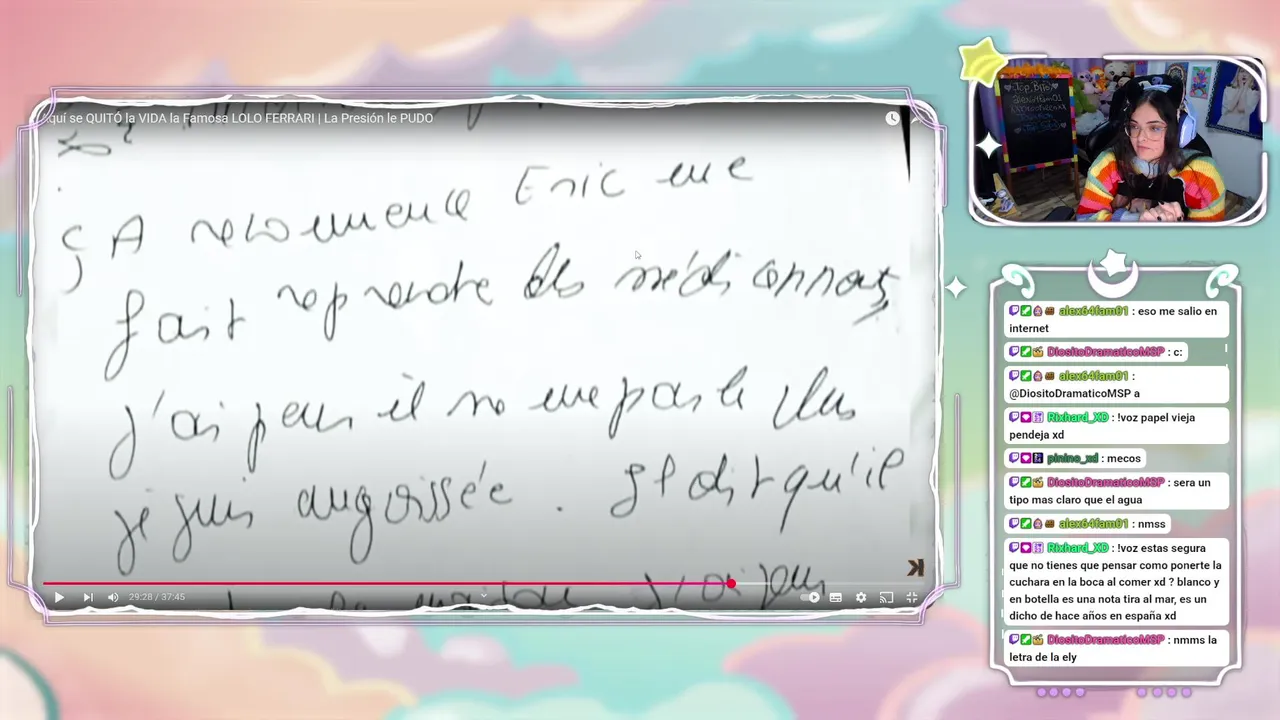 quí se QUITÓ la VIDA la Famosa LOLO FERRARI | La Presión le PUDO
ça recommence Eric me
fait reprendre des médicaments,
j'ai peur il ne me parle plus
je suis angoissée. Il dit qu'il
j'ai peur
29:28 / 37:45
Top Bits
alex64fam01 : eso me salio en
internet
DiositoDramaticoMSP : c:
alex64fam01 :
@DiositoDramaticoMSP a
Rixhard_XD : !voz papel vieja
pendeja xd
pinino_xd : mecos
DiositoDramaticoMSP : sera un
tipo mas claro que el agua
alex64fam01 : nmss
Rixhard_XD : !voz estas segura
que no tienes que pensar como ponerte la
cuchara en la boca al comer xd ? blanco y
en botella es una nota tira al mar, es un
dicho de hace años en españa xd
DiositoDramaticoMSP : nmms la
letra de la ely